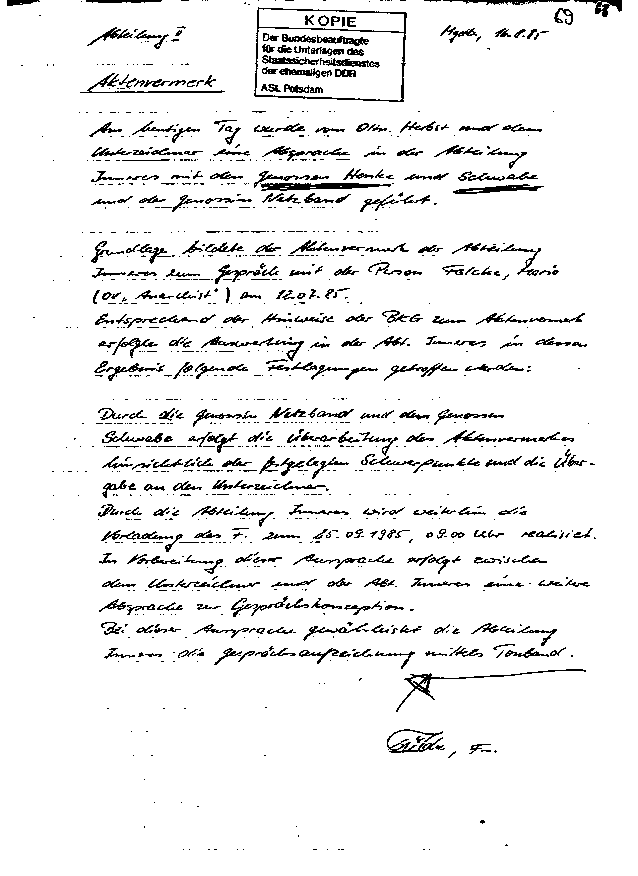 69
Abteilung II
KOPIE
Der Bundesbeauftragte
für die Unterlagen des
Staatssicherheitsdienstes
der ehemaligen DDR
ASt. Potsdam
Aktenvermerk
Am heutigen Tag wurde vom Oltn. Herbst und dem
Unterzeichner eine Absprache in der Abteilung
Inneres mit den Genossen Hanke und Schwabe
und der Genossin Netzband geführt.
Grundlage bildete der Aktenvermerk der Abteilung
Inneres zum Gespräch mit der Person Falcke, Mario
(OV "Anarchist") am 12.07.85.
Entsprechend der Hinweise der BKG zum Aktenvermerk
erfolgte die Auswertung in der Abt. Inneres in dessen
Ergebnis folgende Festlegungen getroffen wurden:
Durch die Genossin Netzband und dem Genossen
Schwabe erfolgt die Überarbeitung des Aktenvermerkes
hinsichtlich der festgelegten Schwerpunkte und die Über-
gabe an den Unterzeichner.
Durch die Abteilung Inneres wird weiterhin die
Vorladung des F. zum 05.09.1985, 09.00 Uhr realisiert.
In Vorbereitung dieser Aussprache erfolgt zwischen
dem Unterzeichner und der Abt. Inneres eine weitere
Absprache zur Gesprächskonzeption.
Bei dieser Aussprache gewährleistet die Abteilung
Inneres die Gesprächsaufzeichnung mittels Tonband.